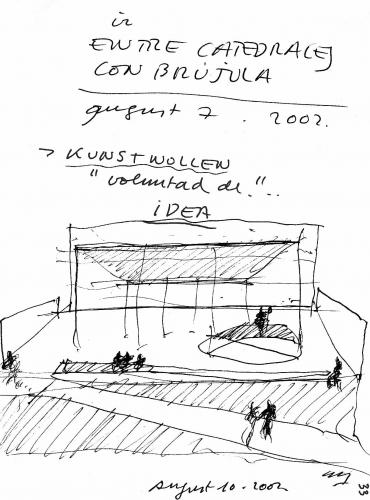 ir
ENTRE CATEDRALES
CON BRÚJULA
august 7. 2002.
> KUNSTWOLLEN
"voluntad de"...
IDEA
august 10. 2002
33